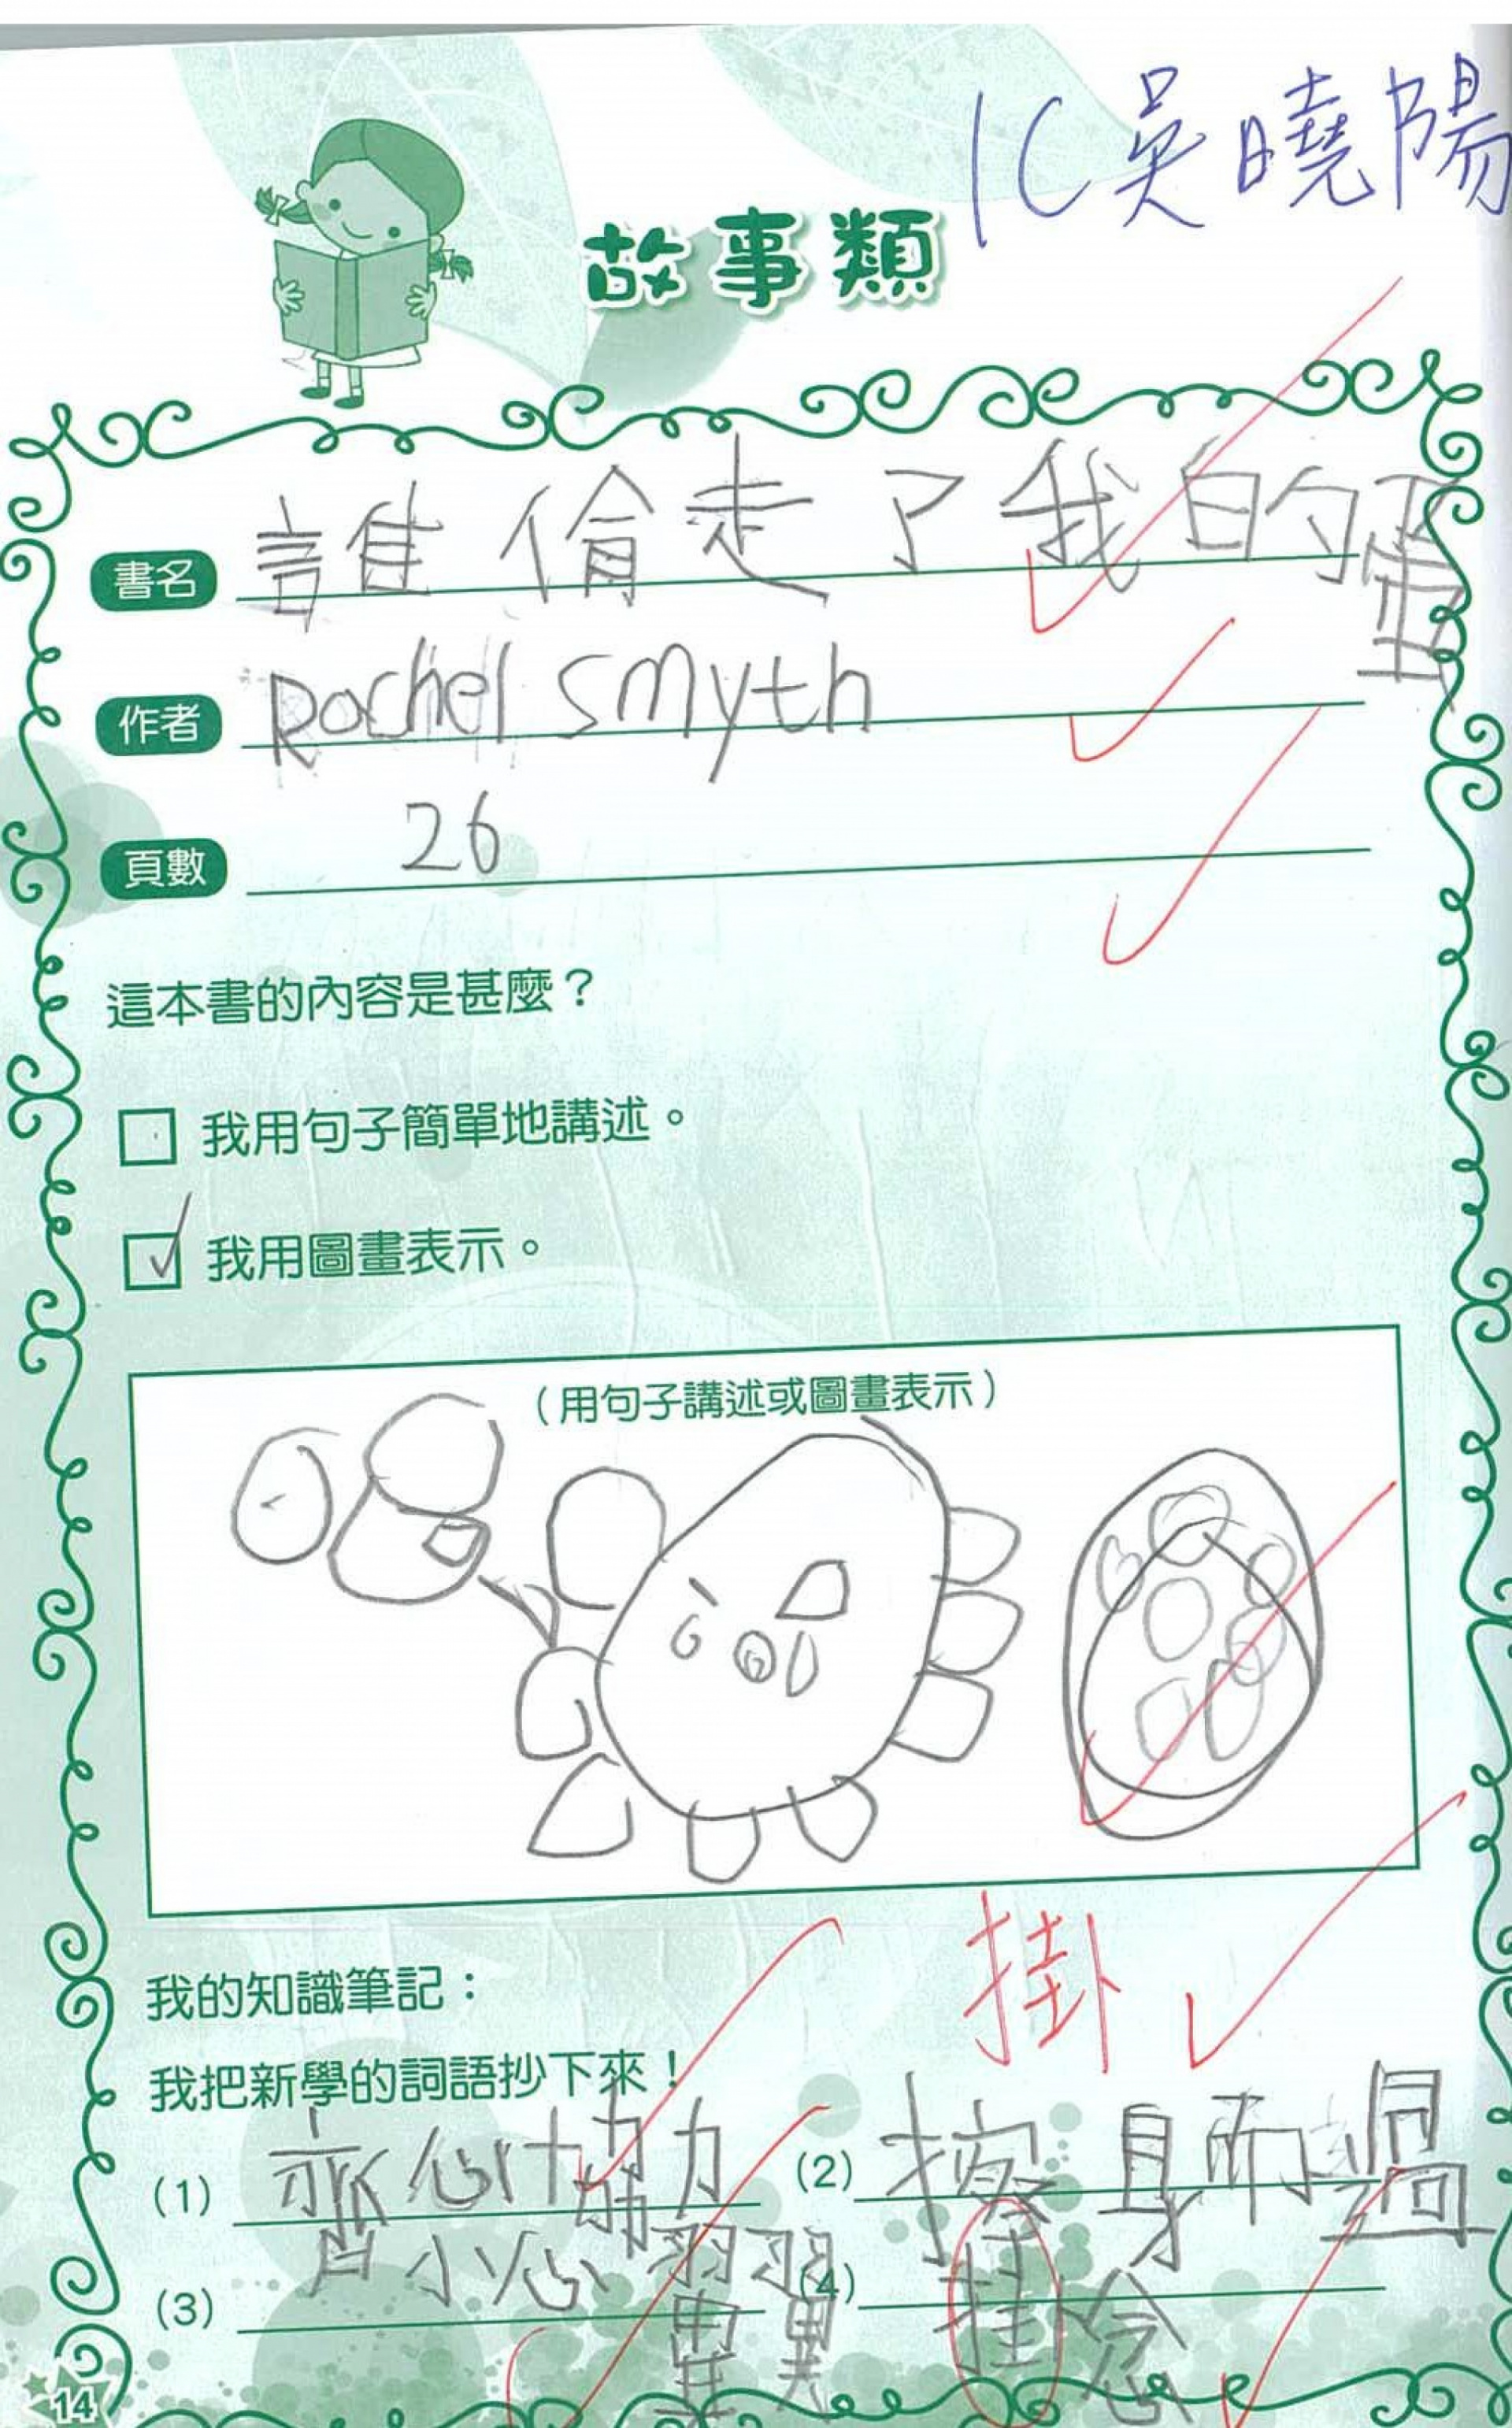 1C吳曉陽
故事類
書名 誰偷走了我的蛋
作者 Rachel Smyth
頁數 26
這本書的內容是甚麼？
我用句子簡單地講述。
我用圖畫表示。
（用句子講述或圖畫表示）
我的知識筆記：
掛
我把新學的詞語抄下來！
(1) 齊心協力 (2) 擦身而過
(3) 小心翼翼 (4) 掛念
14